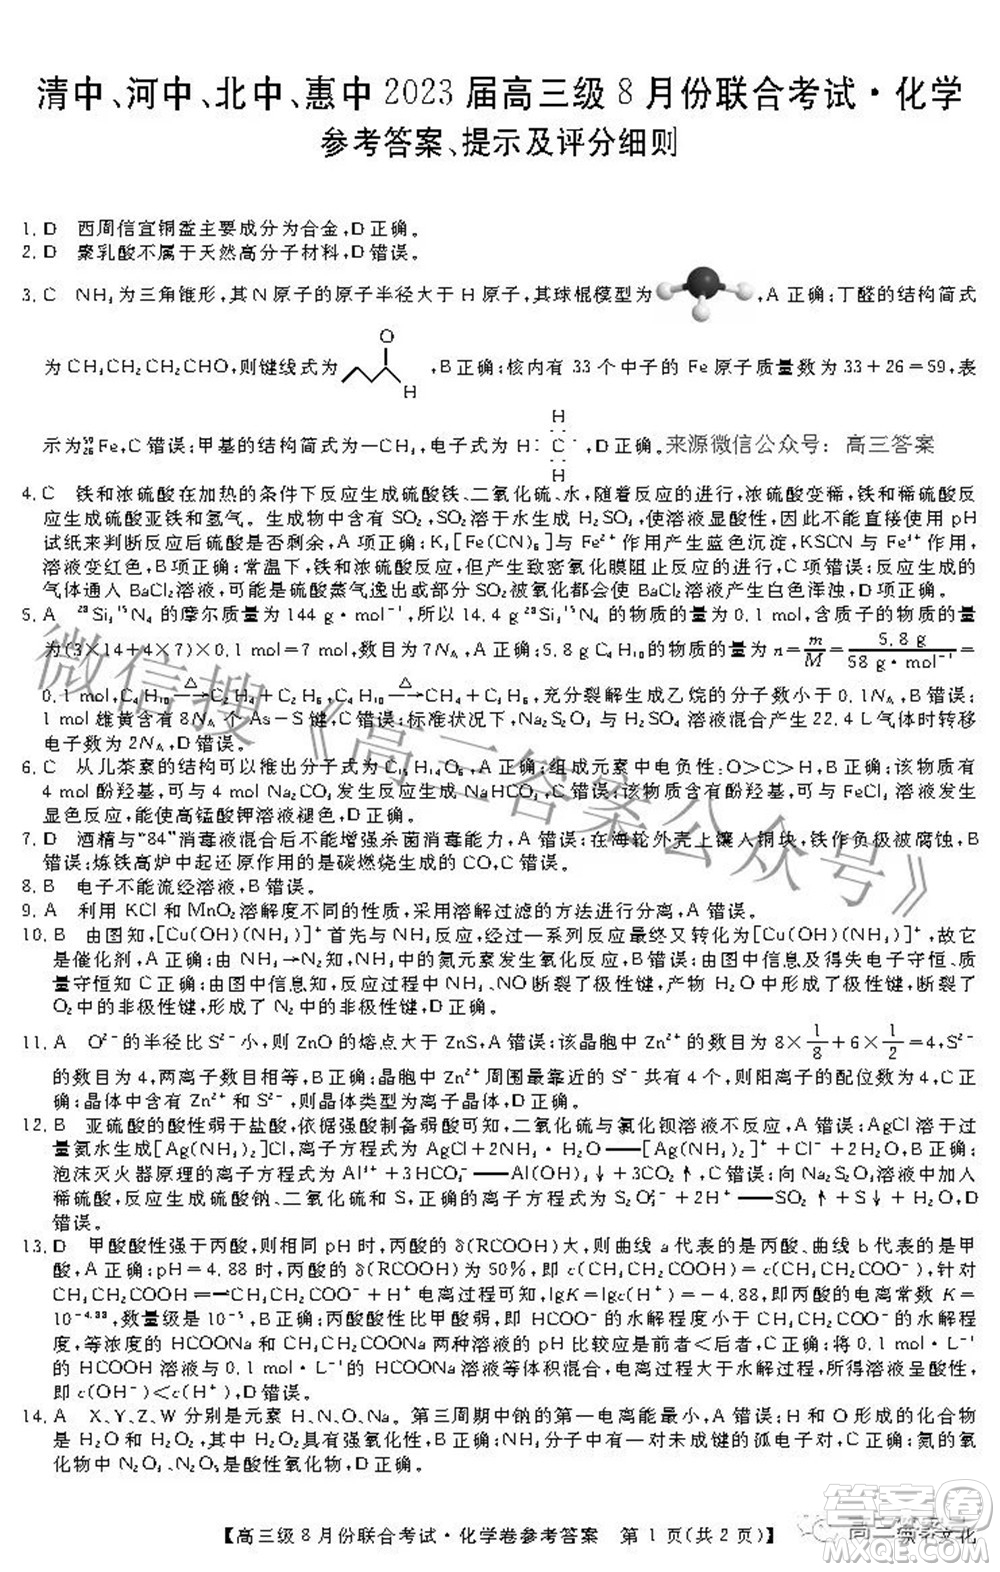 清中、河中、北中、惠中2023届高三级8月份联合考试·化学
参考答案、提示及评分细则
1. D 西周信宜铜盉主要成分为合金,D正确。
2. D 聚乳酸不属于天然高分子材料,D错误。
3. C NH₃为三角锥形,其N原子的原子半径大于H原子,其球棍模型为 ,A正确;丁醛的结构简式
为CH₃CH₂CH₂CHO,则键线式为 O H ,B正确;核内有33个中子的Fe原子质量数为33+26=59,表
示为⁵⁹₂₆Fe,C错误;甲基的结构简式为—CH₃,电子式为 H:C:H H H ,D正确。 来源微信公众号:高三答案
4. C 铁和浓硫酸在加热的条件下反应生成硫酸铁、二氧化硫、水,随着反应的进行,浓硫酸变稀,铁和稀硫酸反
应生成硫酸亚铁和氢气。生成物中含有SO₂,SO₂溶于水生成H₂SO₃,使溶液显酸性,因此不能直接使用pH
试纸来判断反应后硫酸是否剩余,A项正确;K₃[Fe(CN)₆]与Fe²⁺作用产生蓝色沉淀,KSCN与Fe³⁺作用,
溶液变红色,B项正确;常温下,铁和浓硫酸反应,但产生致密氧化膜阻碍反应的进行,C项错误;反应生成的
气体通入BaCl₂溶液,可能是硫酸蒸气逸出或SO₂被氧化都会使BaCl₂溶液产生白色浑浊,D项正确。
5. A ²⁸Si₃¹⁵N₄的摩尔质量为144 g·mol⁻¹,所以14.4 g²⁸Si₃¹⁵N₄的物质的量为0.1 mol,含质子的物质的量
为(3×14+4×7)×0.1 mol=7 mol,数目为7Nₐ,A正确;5.8 g C₄H₁₀的物质的量为n=m/M=5.8 g/58 g·mol⁻¹=
0.1 mol,C₄H₁₀—△→C₂H₄+C₂H₆,C₄H₁₀—△→CH₄+C₃H₆,充分裂解生成乙烷的分子数小于0.1Nₐ,B错误;
1 mol雄黄含有8Nₐ个As—S键,C错误;标准状况下,Na₂S₂O₃与H₂SO₄溶液混合产生22.4 L气体时转移
电子数为2Nₐ,D错误。
6. C 从儿茶素的结构可以推出分子式为C₁₅H₁₄O₆,A正确;组成元素中电负性:O>C>H,B正确;该物质有
4 mol酚羟基,可与4 mol Na₂CO₃发生反应生成NaHCO₃,C错误;该物质含有酚羟基,可与FeCl₃溶液发生
显色反应,能使高锰酸钾溶液褪色,D正确。
7. D 酒精与“84”消毒液混合后不能增强杀菌消毒能力,A错误;在海轮外壳上镶入铜块,铁作负极被腐蚀,B
错误;炼铁高炉中起还原作用的是碳燃烧生成的CO,C错误。
8. B 电子不能流经溶液,B错误。
9. A 利用KCl和MnO₂溶解度不同的性质,采用溶解过滤的方法进行分离,A错误。
10. B 由图知,[Cu(OH)(NH₃)]⁺首先与NH₃反应,经过一系列反应最终又转化为[Cu(OH)(NH₃)]⁺,故它
是催化剂,A正确;由NH₃→N₂知,NH₃中的氮元素发生氧化反应,B错误;由图中信息及得失电子守恒、质
量守恒知C正确;由图中信息知,反应过程中NH₃、NO断裂了极性键,产物H₂O中形成了极性键,断裂了
O₂中的非极性键,形成了N₂中的非极性键,D正确。
11. A O²⁻的半径比S²⁻小,则ZnO的熔点大于ZnS,A错误;该晶胞中Zn²⁺的数目为8×1/8+6×1/2=4,S²⁻
的数目为4,两离子数目相等,B正确;晶胞中Zn²⁺周围最靠近的S²⁻共有4个,则阳离子的配位数为4,C正
确;晶体中含有Zn²⁺和S²⁻,则晶体类型为离子晶体,D正确。
12. B 亚硫酸的酸性弱于盐酸,依据强酸制备弱酸可知,二氧化硫与氯化钡溶液不反应,A错误;AgCl溶于过
量氨水生成[Ag(NH₃)₂]Cl,离子方程式为AgCl+2NH₃·H₂O══[Ag(NH₃)₂]⁺+Cl⁻+2H₂O,B正确;
泡沫灭火器原理的离子方程式为Al³⁺+3HCO₃⁻══Al(OH)₃↓+3CO₂↑,C错误;向Na₂S₂O₃溶液中加入
稀硫酸,反应生成硫酸钠、二氧化硫和S,正确的离子方程式为S₂O₃²⁻+2H⁺══SO₂↑+S↓+H₂O,D
错误。
13. D 甲酸酸性强于丙酸,则相同pH时,丙酸的δ(RCOOH)大,则曲线a代表的是丙酸、曲线b代表的是甲
酸,A正确;pH=4.88时,丙酸的δ(RCOOH)为50%,即c(CH₃CH₂COOH)=c(CH₃CH₂COO⁻),针对
CH₃CH₂COOH⇌CH₃CH₂COO⁻+H⁺电离过程可知,lgK=lgc(H⁺)=-4.88,即丙酸的电离常数K=
10⁻⁴·⁸⁸,数量级是10⁻⁵,B正确;丙酸酸性比甲酸弱,即HCOO⁻的水解程度小于CH₃CH₂COO⁻的水解程
度,等浓度的HCOONa和CH₃CH₂COONa两种溶液的pH比较应是前者<后者,C正确;将0.1 mol·L⁻¹
的HCOOH溶液与0.1 mol·L⁻¹的HCOONa溶液等体积混合,电离过程大于水解过程,所得溶液呈酸性,
即c(OH⁻)<c(H⁺),D错误。
14. A X、Y、Z、W分别是元素H、N、O、Na。第三周期中钠的第一电离能最小,A错误;H和O形成的化合物
是H₂O和H₂O₂,其中H₂O₂具有强氧化性,B正确;NH₃分子中存在一对未成键的孤电子对,C正确;氮的氧
化物中N₂O₃、N₂O₅是酸性氧化物,D正确。
【高三级8月份联合考试·化学卷参考答案 第1页(共2页)】
微信搜《高三答案公众号》
答案卷